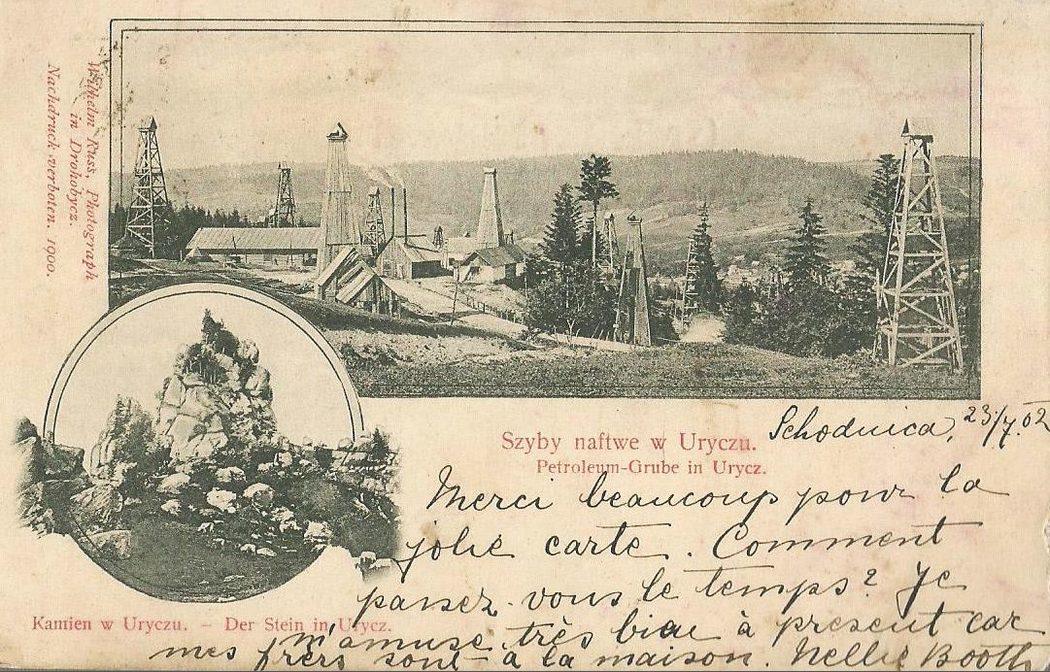 Wilhelm Russ, Photograph
in Drohobycz.
Nachdruck verboten. 1900.
Szyby naftwe w Uryczu.
Petroleum-Grube in Urycz.
Schodnica, 23/7.02
Merci beaucoup pour la
jolie carte. Comment
passez-vous le temps? Je
Kamien w Uryczu. – Der Stein in Urycz.
m'amuse très bien à present car
mes frers sont à la maison. Nellie Booth